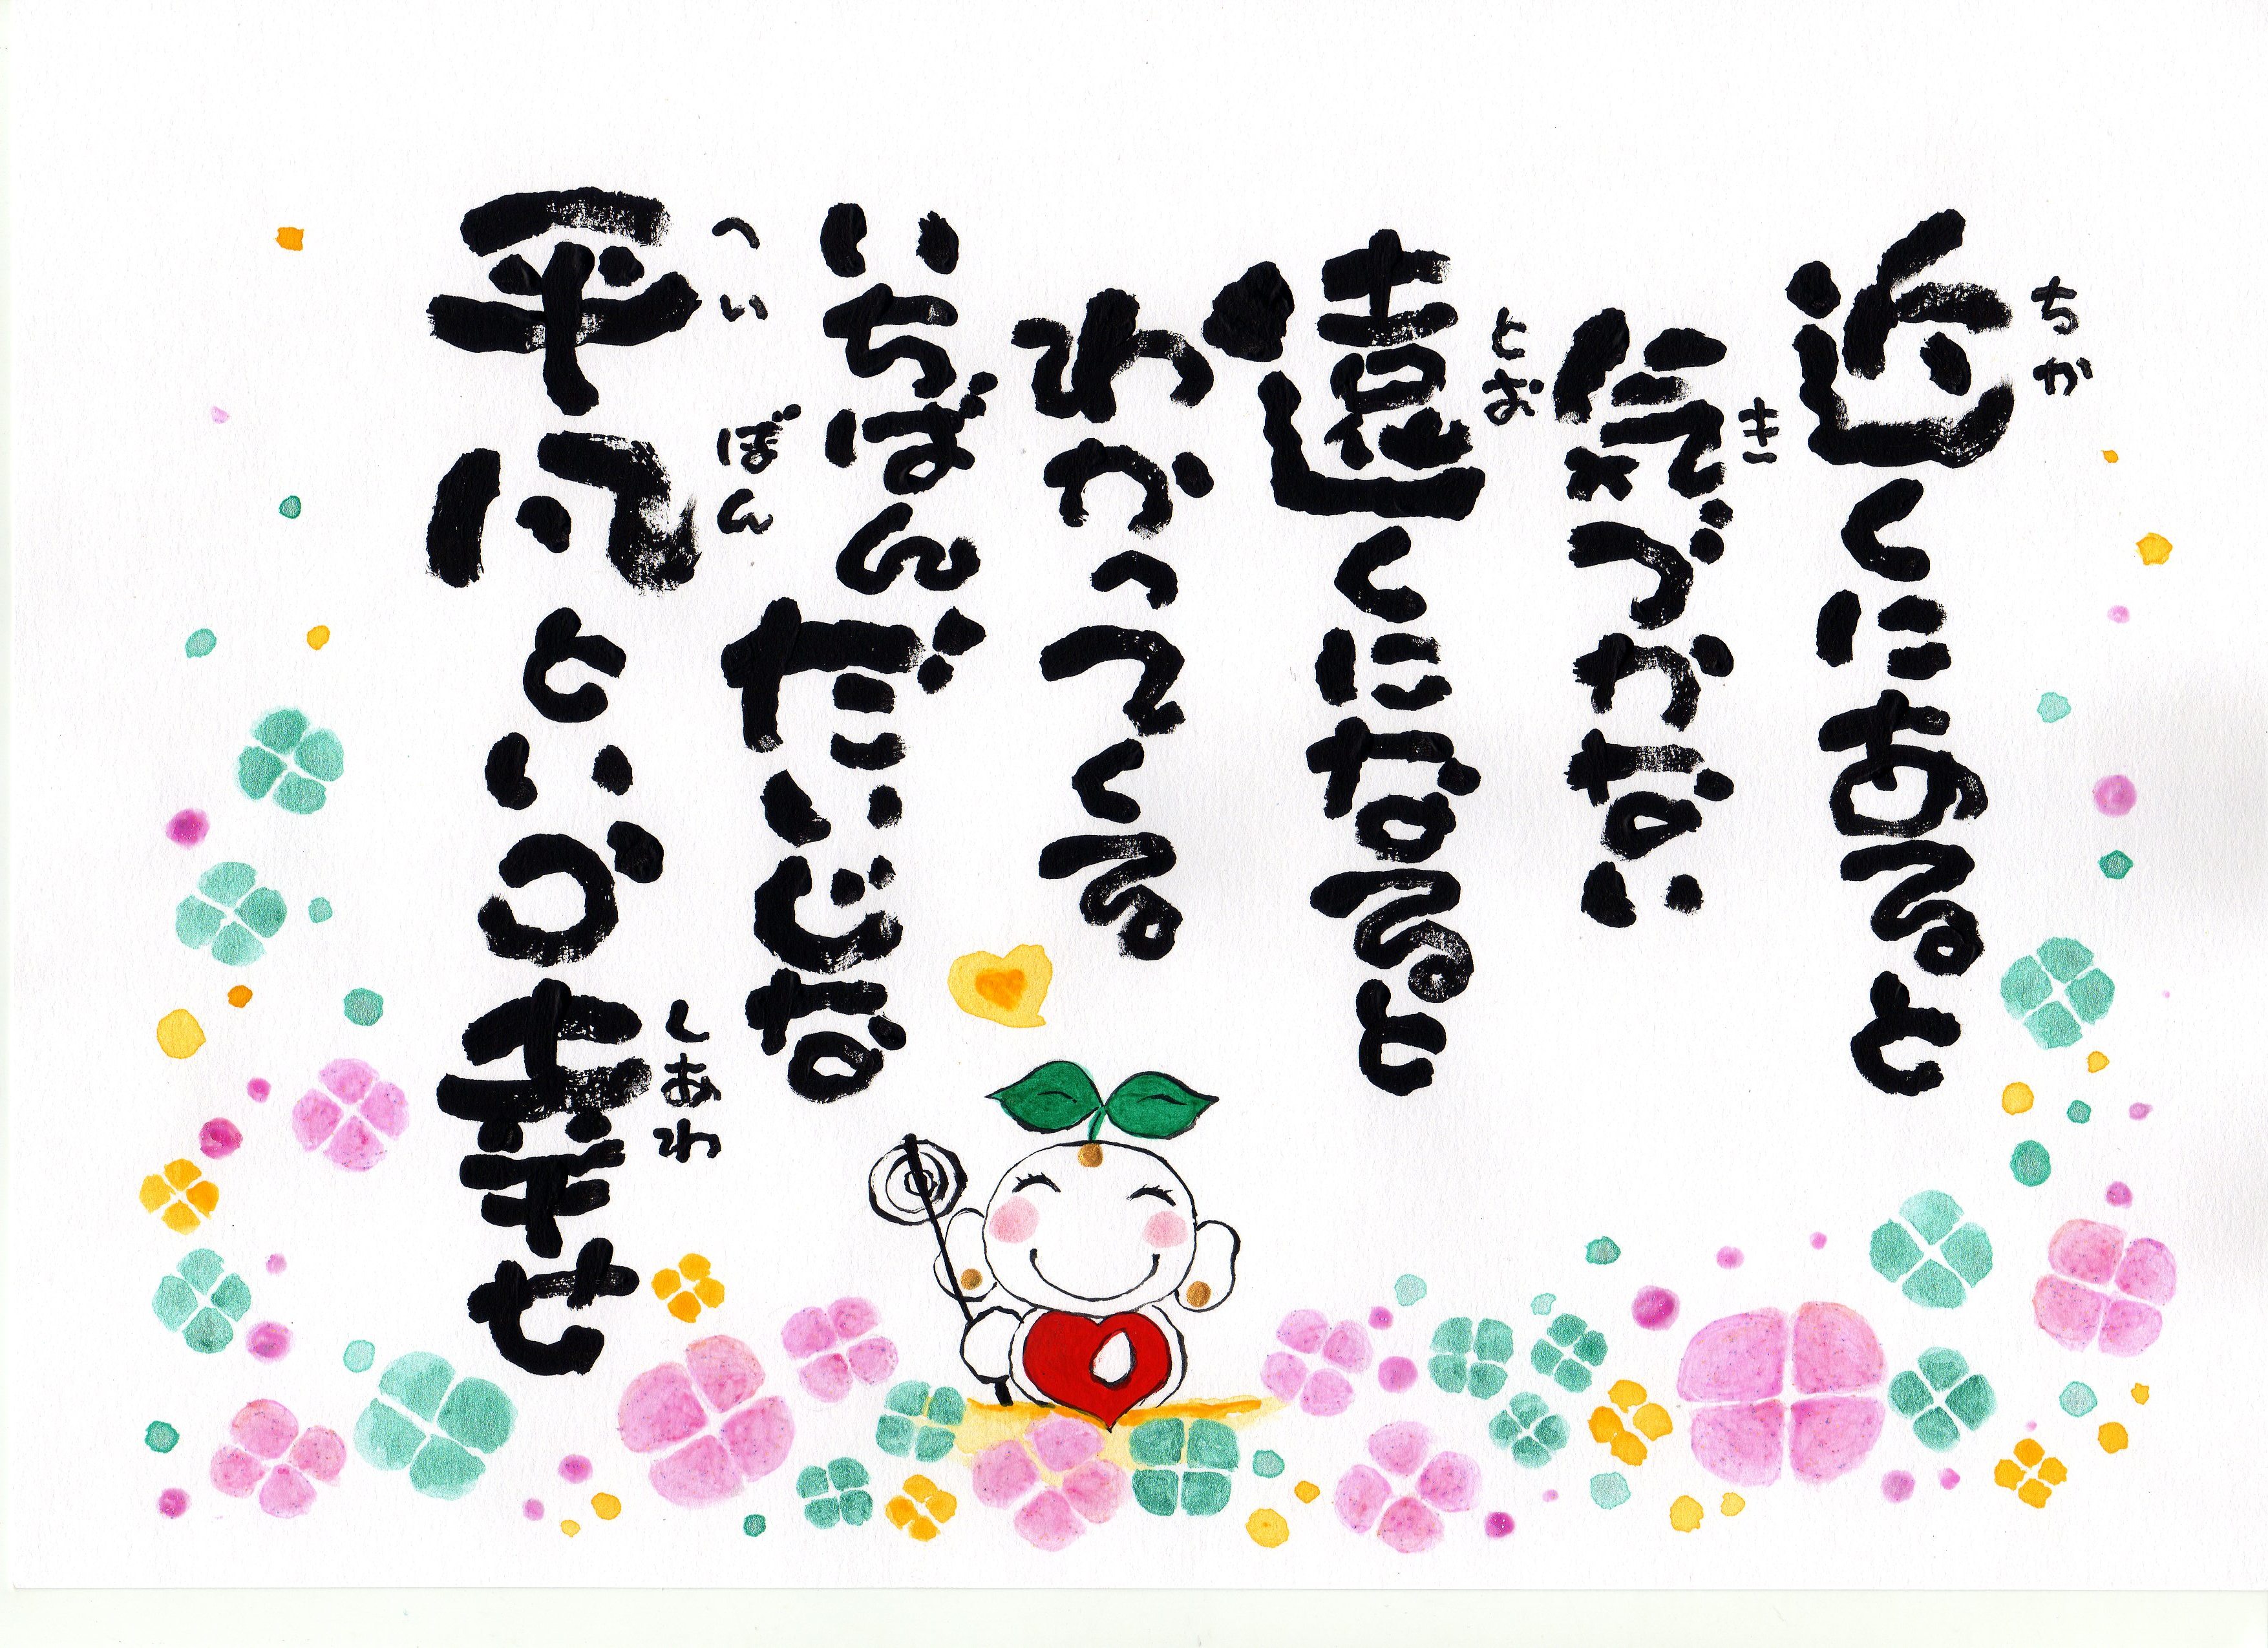 近くにあると
気づかない
遠くになると
わかってくる
いちばんだいじな
平凡という幸せ
ちか
き
とお
へいぼん
しあわ